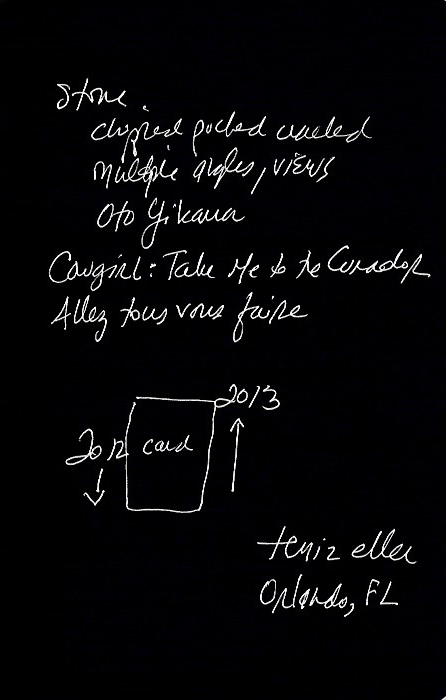 Stone
chipped pocked cracked
multiple angles, views
Oto Yikama
Cowgirl: Take Me to the Corrador
Allez tous vous faire
2013
2012 card
temiz eller
Orlando, FL